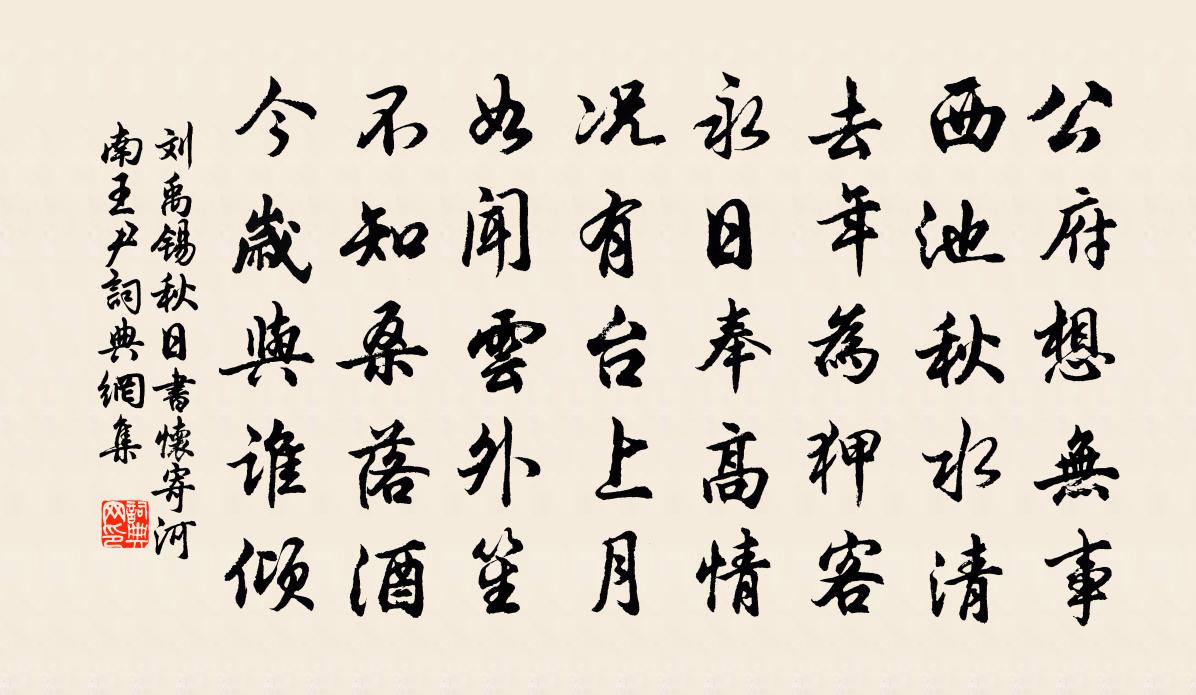 公府想無事
西池秋水清
去年為狎客
永日奉高情
况有台上月
如聞雲外笙
不知桑落酒
今歲與誰傾
刘禹锡秋日書懷寄河
南王尹詞典網集
詞典网印